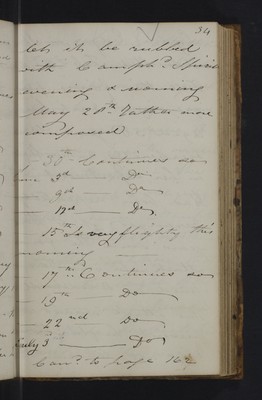 34
let it be rubbed
with Camph.d Spirit
evening & morning
May 28th Rather more
composed
30th Continues so
June 3d — Do
— 9th — Do
— 12th — Do
15th Is very flighty this
morning —
17th Continues so
19th — Do
— 22nd Do
July 3 — Do
Carr.d to page 162